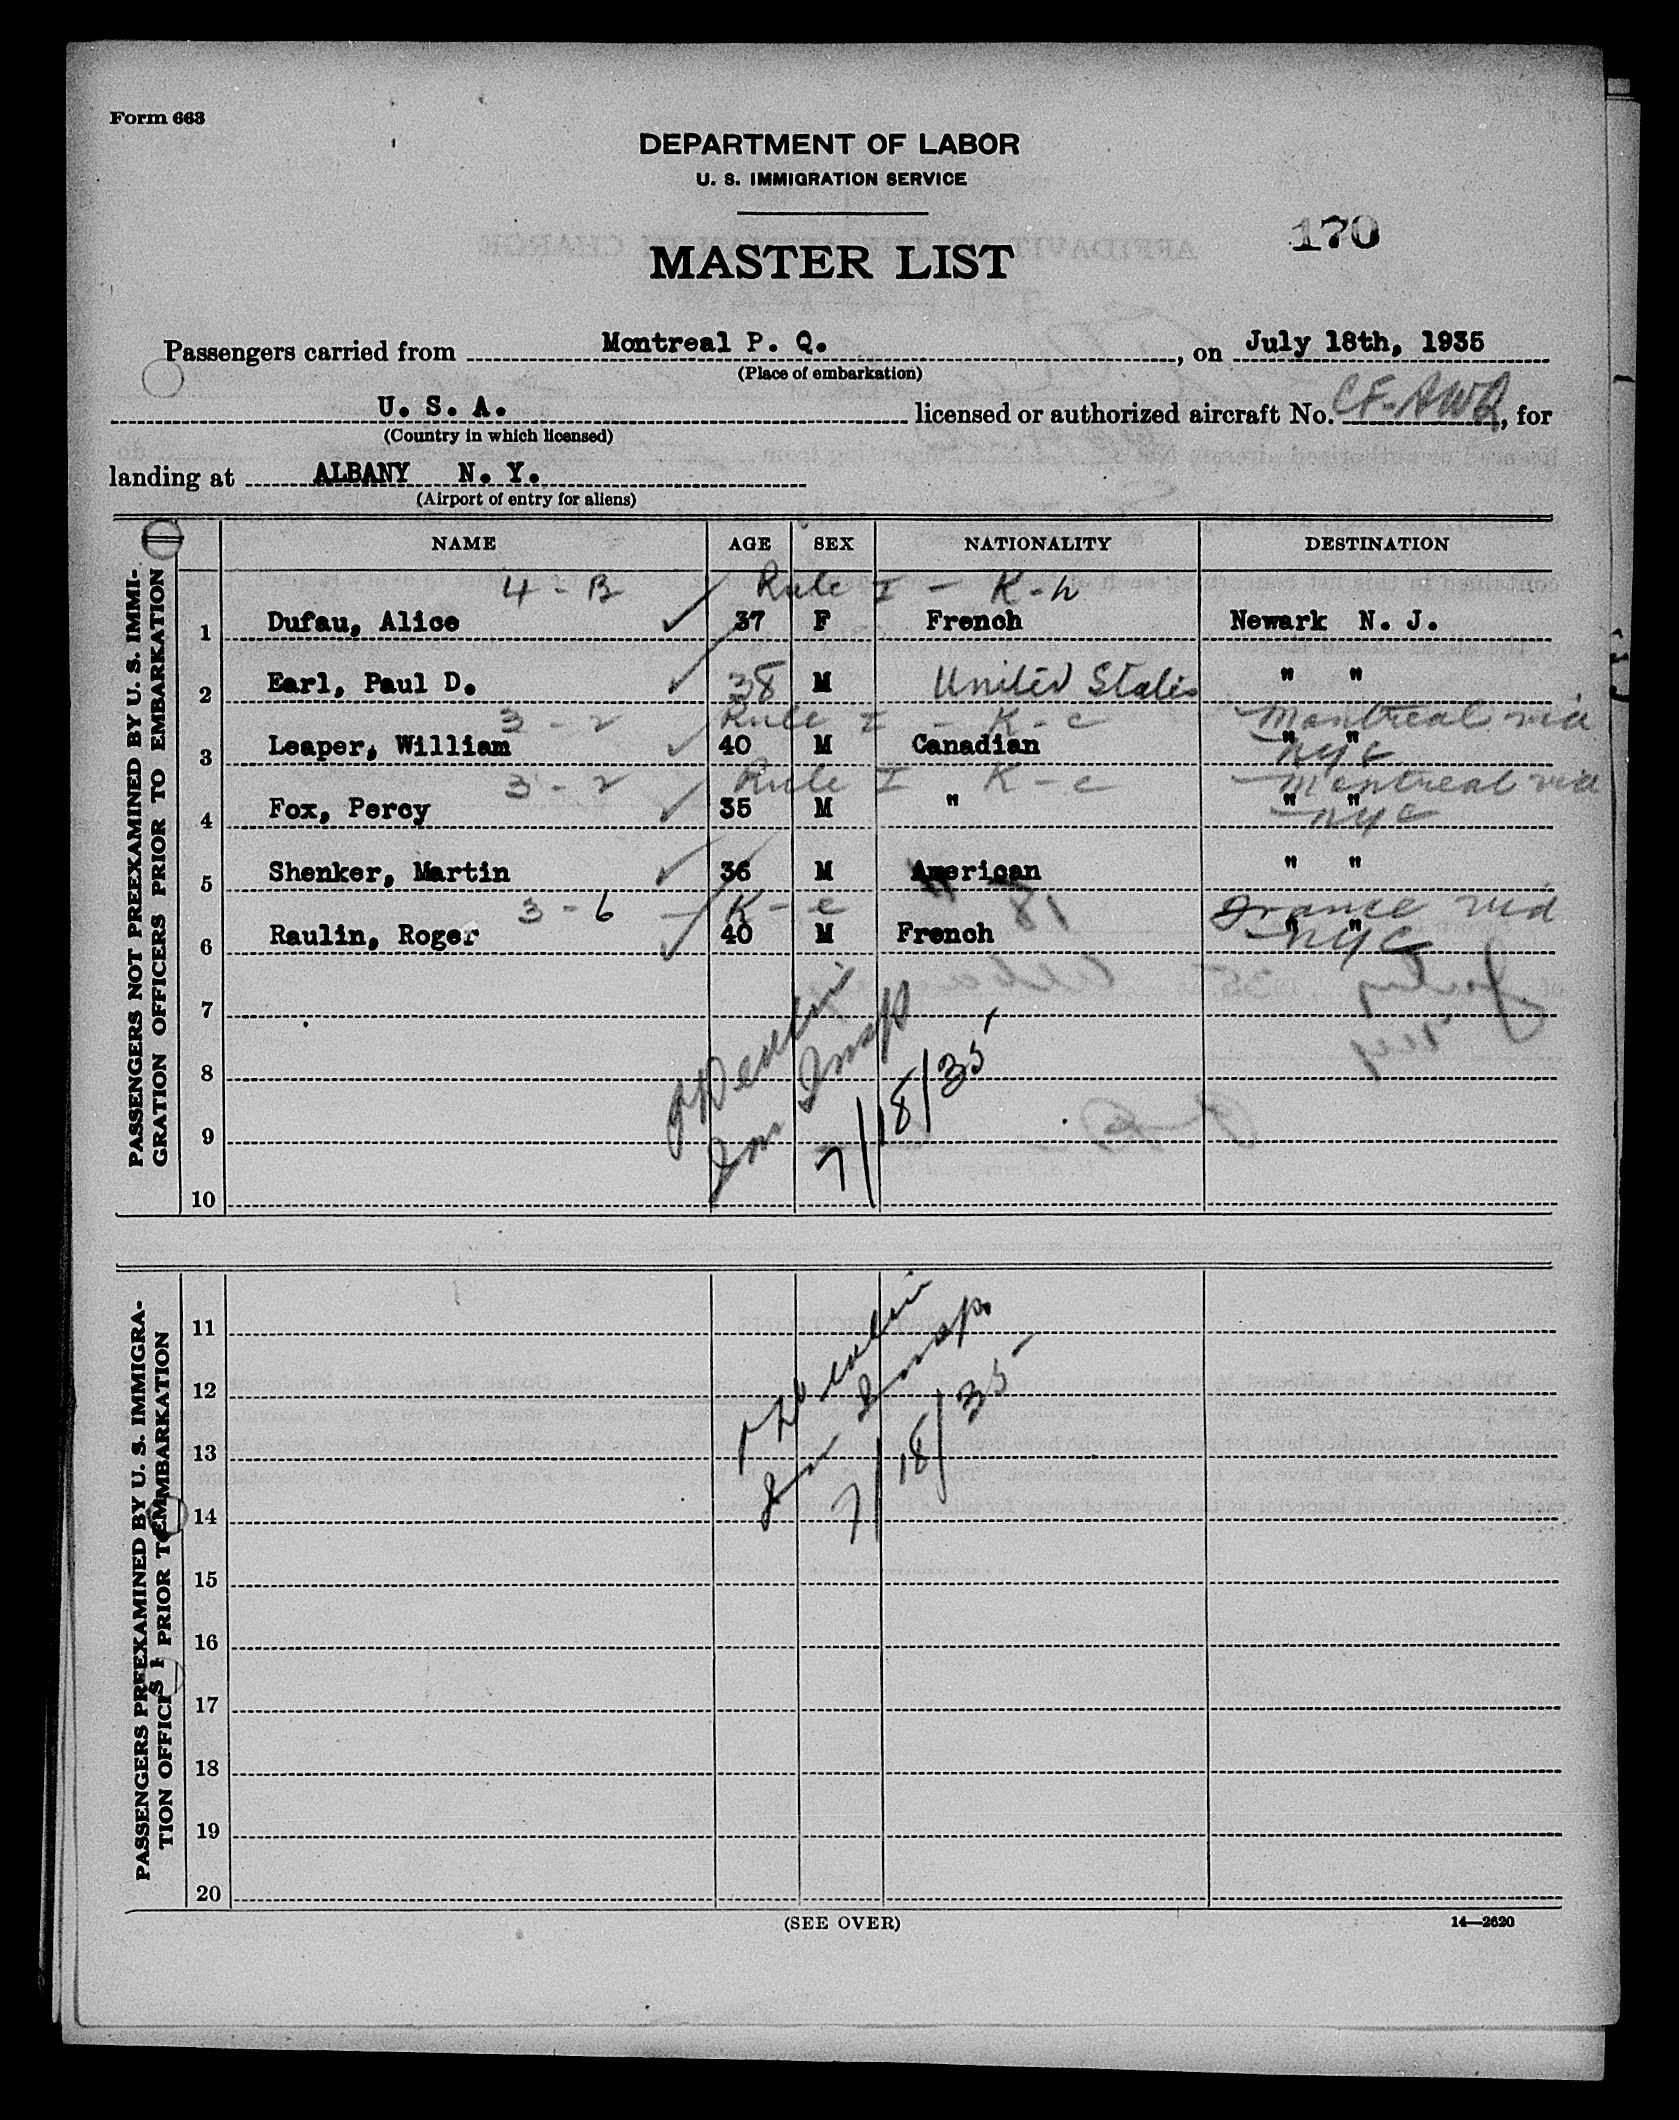 Form 663
DEPARTMENT OF LABOR
U. S. IMMIGRATION SERVICE
170
MASTER LIST
Passengers carried from Montreal P. Q., on July 18th, 1935
(Place of embarkation)
U. S. A. licensed or authorized aircraft No. CF-AWR, for
(Country in which licensed)
landing at ALBANY N. Y.
(Airport of entry for aliens)
PASSENGERS NOT PREEXAMINED BY U. S. IMMI-
GRATION OFFICERS PRIOR TO EMBARKATION
NAME AGE SEX NATIONALITY DESTINATION
4 - B Rule I - K-h
1 Dufau, Alice 37 F French Newark N. J.
2 Earl, Paul D. 38 M United States " "
3 - 2 Rule I - K - c Montreal via
3 Leaper, William 40 M Canadian " " NYC
3 - 2 Rule I K - c Montreal via
4 Fox, Percy 35 M " " " NYC
5 Shenker, Martin 36 M American " "
3 - 6 K - e France via
6 Raulin, Roger 40 M French " " NYC
7
8
9
10
Imm Insp
7/18/35
PASSENGERS PREEXAMINED BY U. S. IMMIGRA-
TION OFFICE S PRIOR TO EMBARKATION
11
12
13
14
15
16
17
18
19
20
Imm Insp.
7/18/35
(SEE OVER)
14—2620